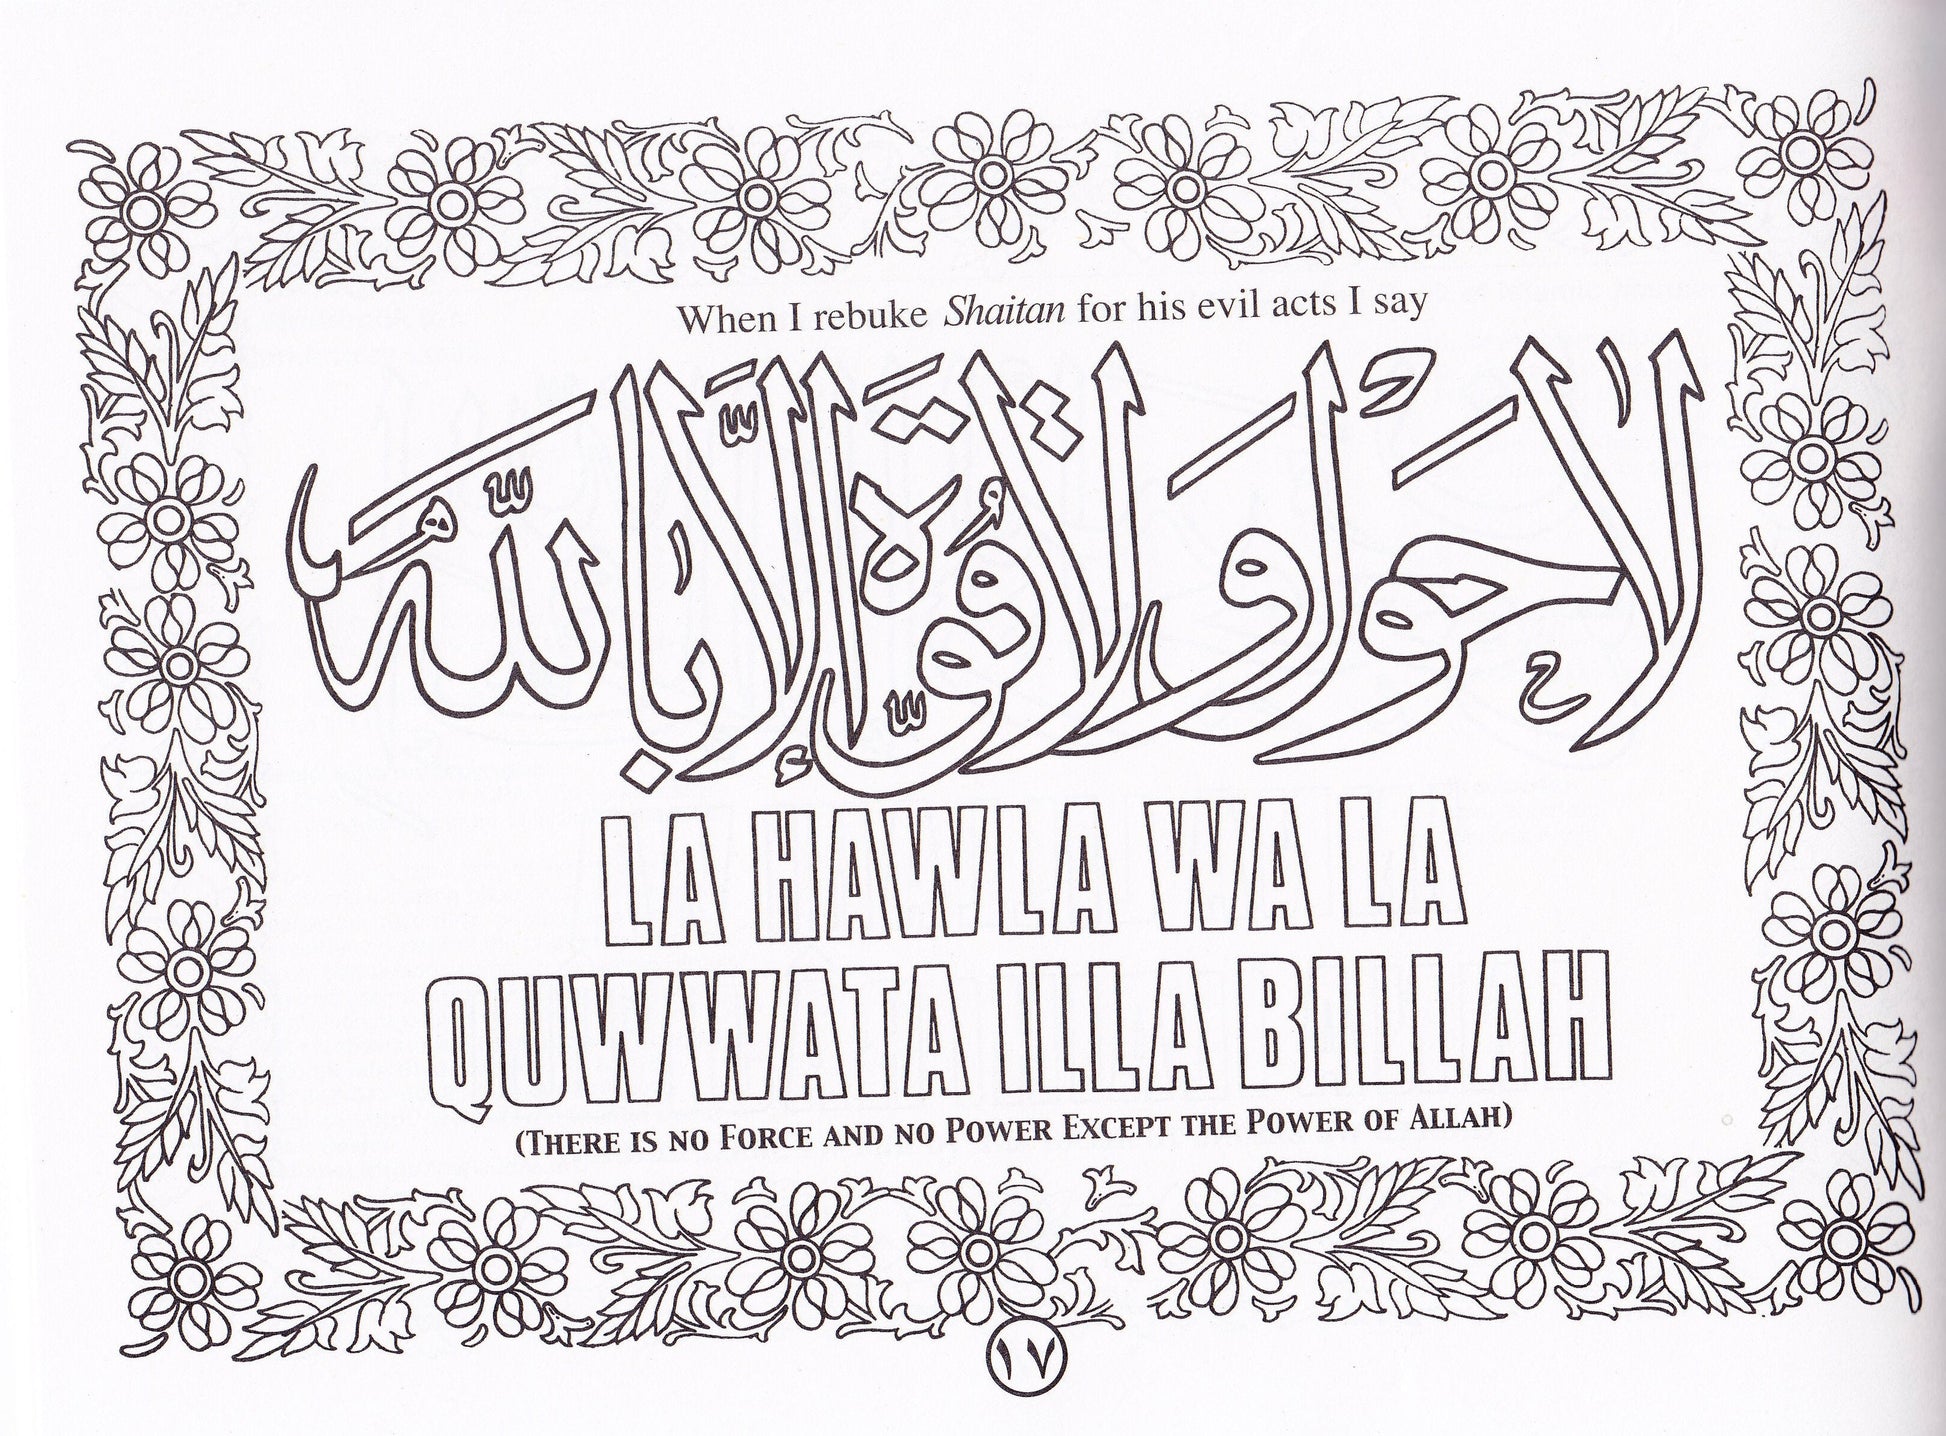 When I rebuke Shaitan for his evil acts I say
لَا حَوْلَ وَلَا قُوَّةَ إِلَّا بِاللّٰهِ
LA HAWLA WA LA
QUWWATA ILLA BILLAH
(THERE IS NO FORCE AND NO POWER EXCEPT THE POWER OF ALLAH)
١٧